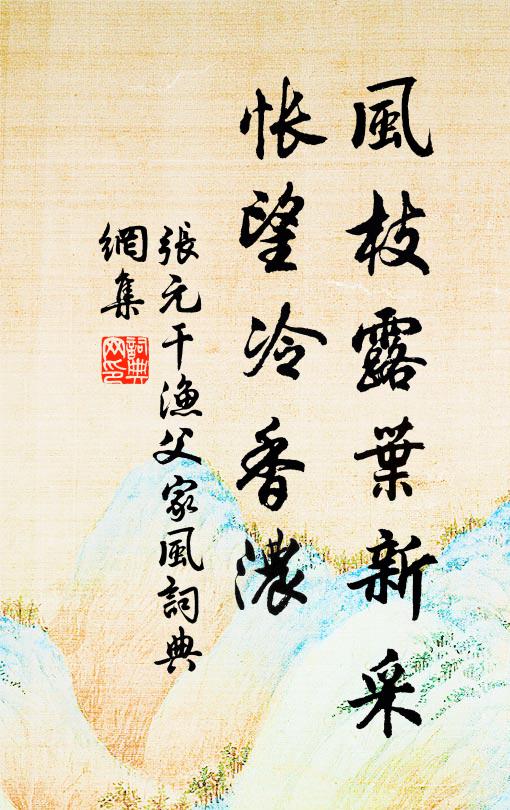 風枝露葉新采
悵望冷香濃
張元干漁父家風詞典
網集
詞典
网印